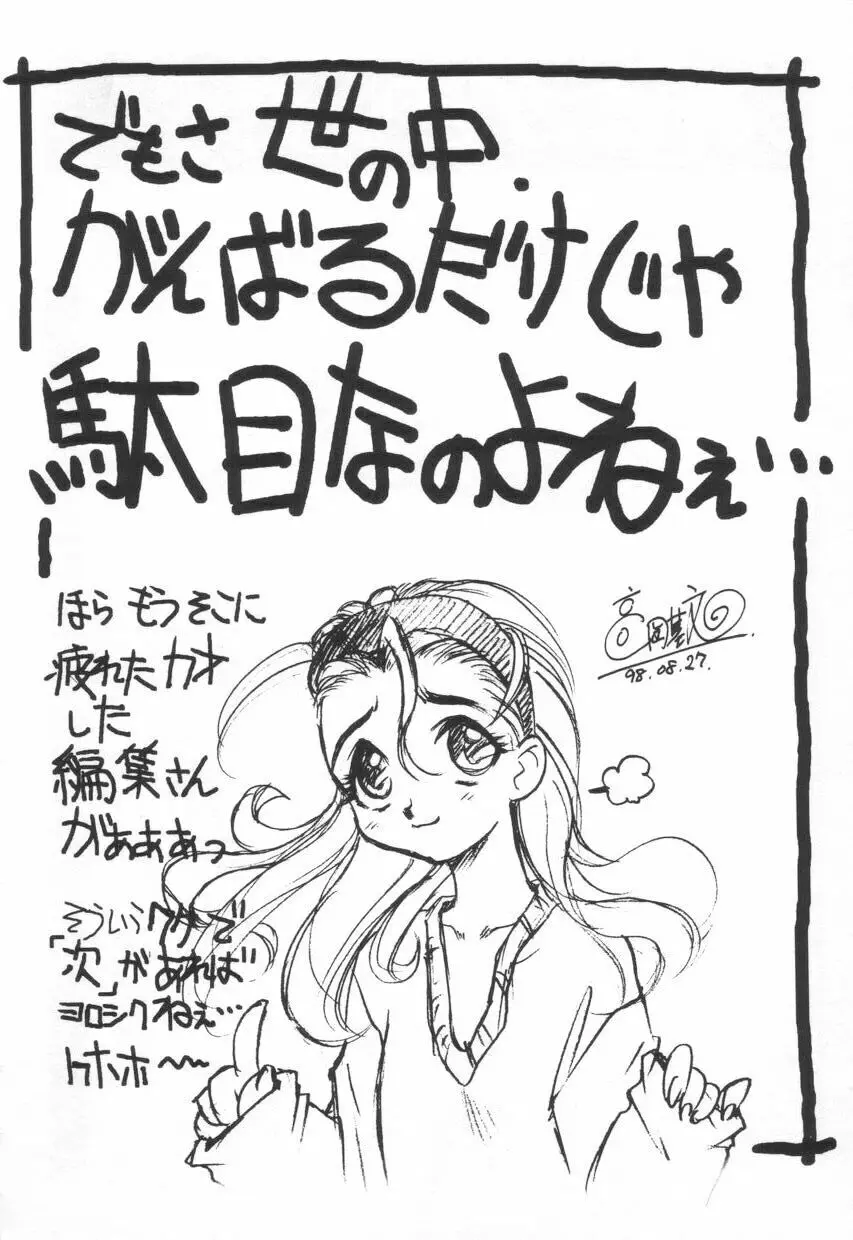 でもさ 世の中.
がんばるだけじゃ
駄目なのよねぇ…
ほら もうそこに
疲れたカオ
した
編集さん
がぁぁぁっ
そういうワケで
「次」があれば
ヨロシクねぇ…
トホホ～
98.08.27.